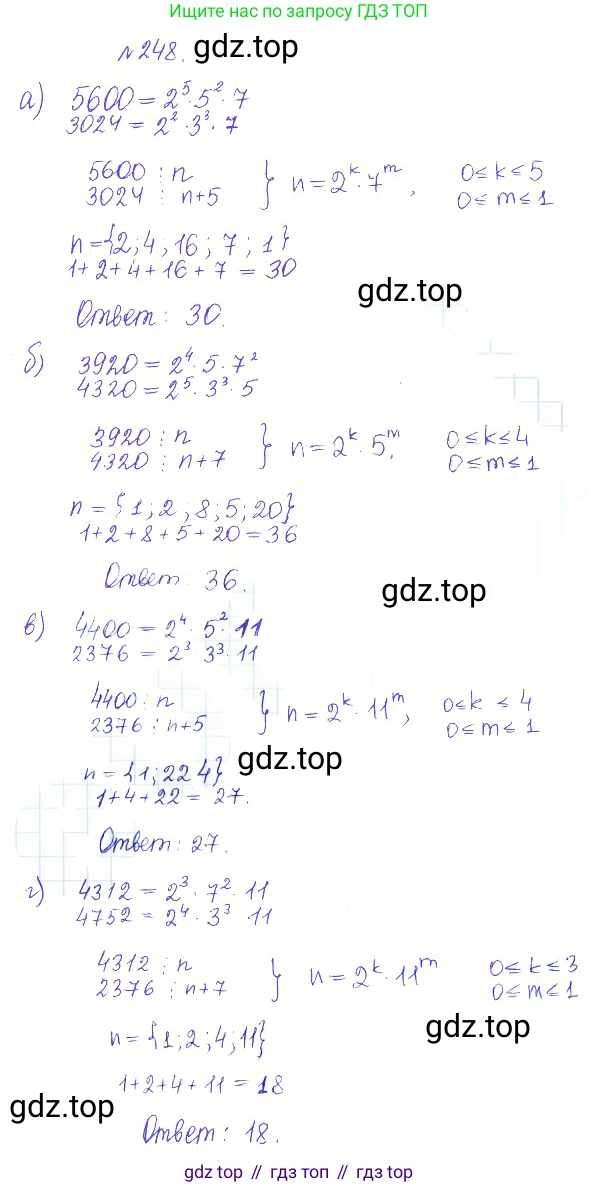 Ищите гдз по запросу "GDZ.TOP"
№248.
gdz.top
а) 5600 = 2⁵·5²·7
3024 = 2²·3³·7
5600 ⋮ n
3024 ⋮ n+5 } n = 2ᵏ·7ᵐ, 0≤k≤5
0≤m≤1
n={2;4;16;7;1}
1+2+4+16+7 = 30
gdz.top
Ответ: 30.
б) 3920 = 2⁴·5·7²
4320 = 2⁵·3³·5
3920 ⋮ n
4320 ⋮ n+7 } n = 2ᵏ·5ᵐ, 0≤k≤4
0≤m≤1
n = {1;2;8;5;20}
1+2+8+5+20=36
Ответ: 36.
gdz.top
в) 4400 = 2⁴·5²·11
2376 = 2³·3³·11
4400 ⋮ n
2376 ⋮ n+5 } n = 2ᵏ·11ᵐ, 0≤k≤4
0≤m≤1
gdz.top
n = {1;22 4}
1+4+22 = 27.
Ответ: 27.
г) 4312 = 2³·7²·11
4752 = 2⁴·3³·11
4312 ⋮ n
2376 ⋮ n+7 } n = 2ᵏ·11ᵐ 0≤k≤3
0≤m≤1
gdz.top
n = {1;2;4;11}
1+2+4+11 = 18
gdz.top
Ответ: 18.
gdz.top // гдз топ // гдз.топ